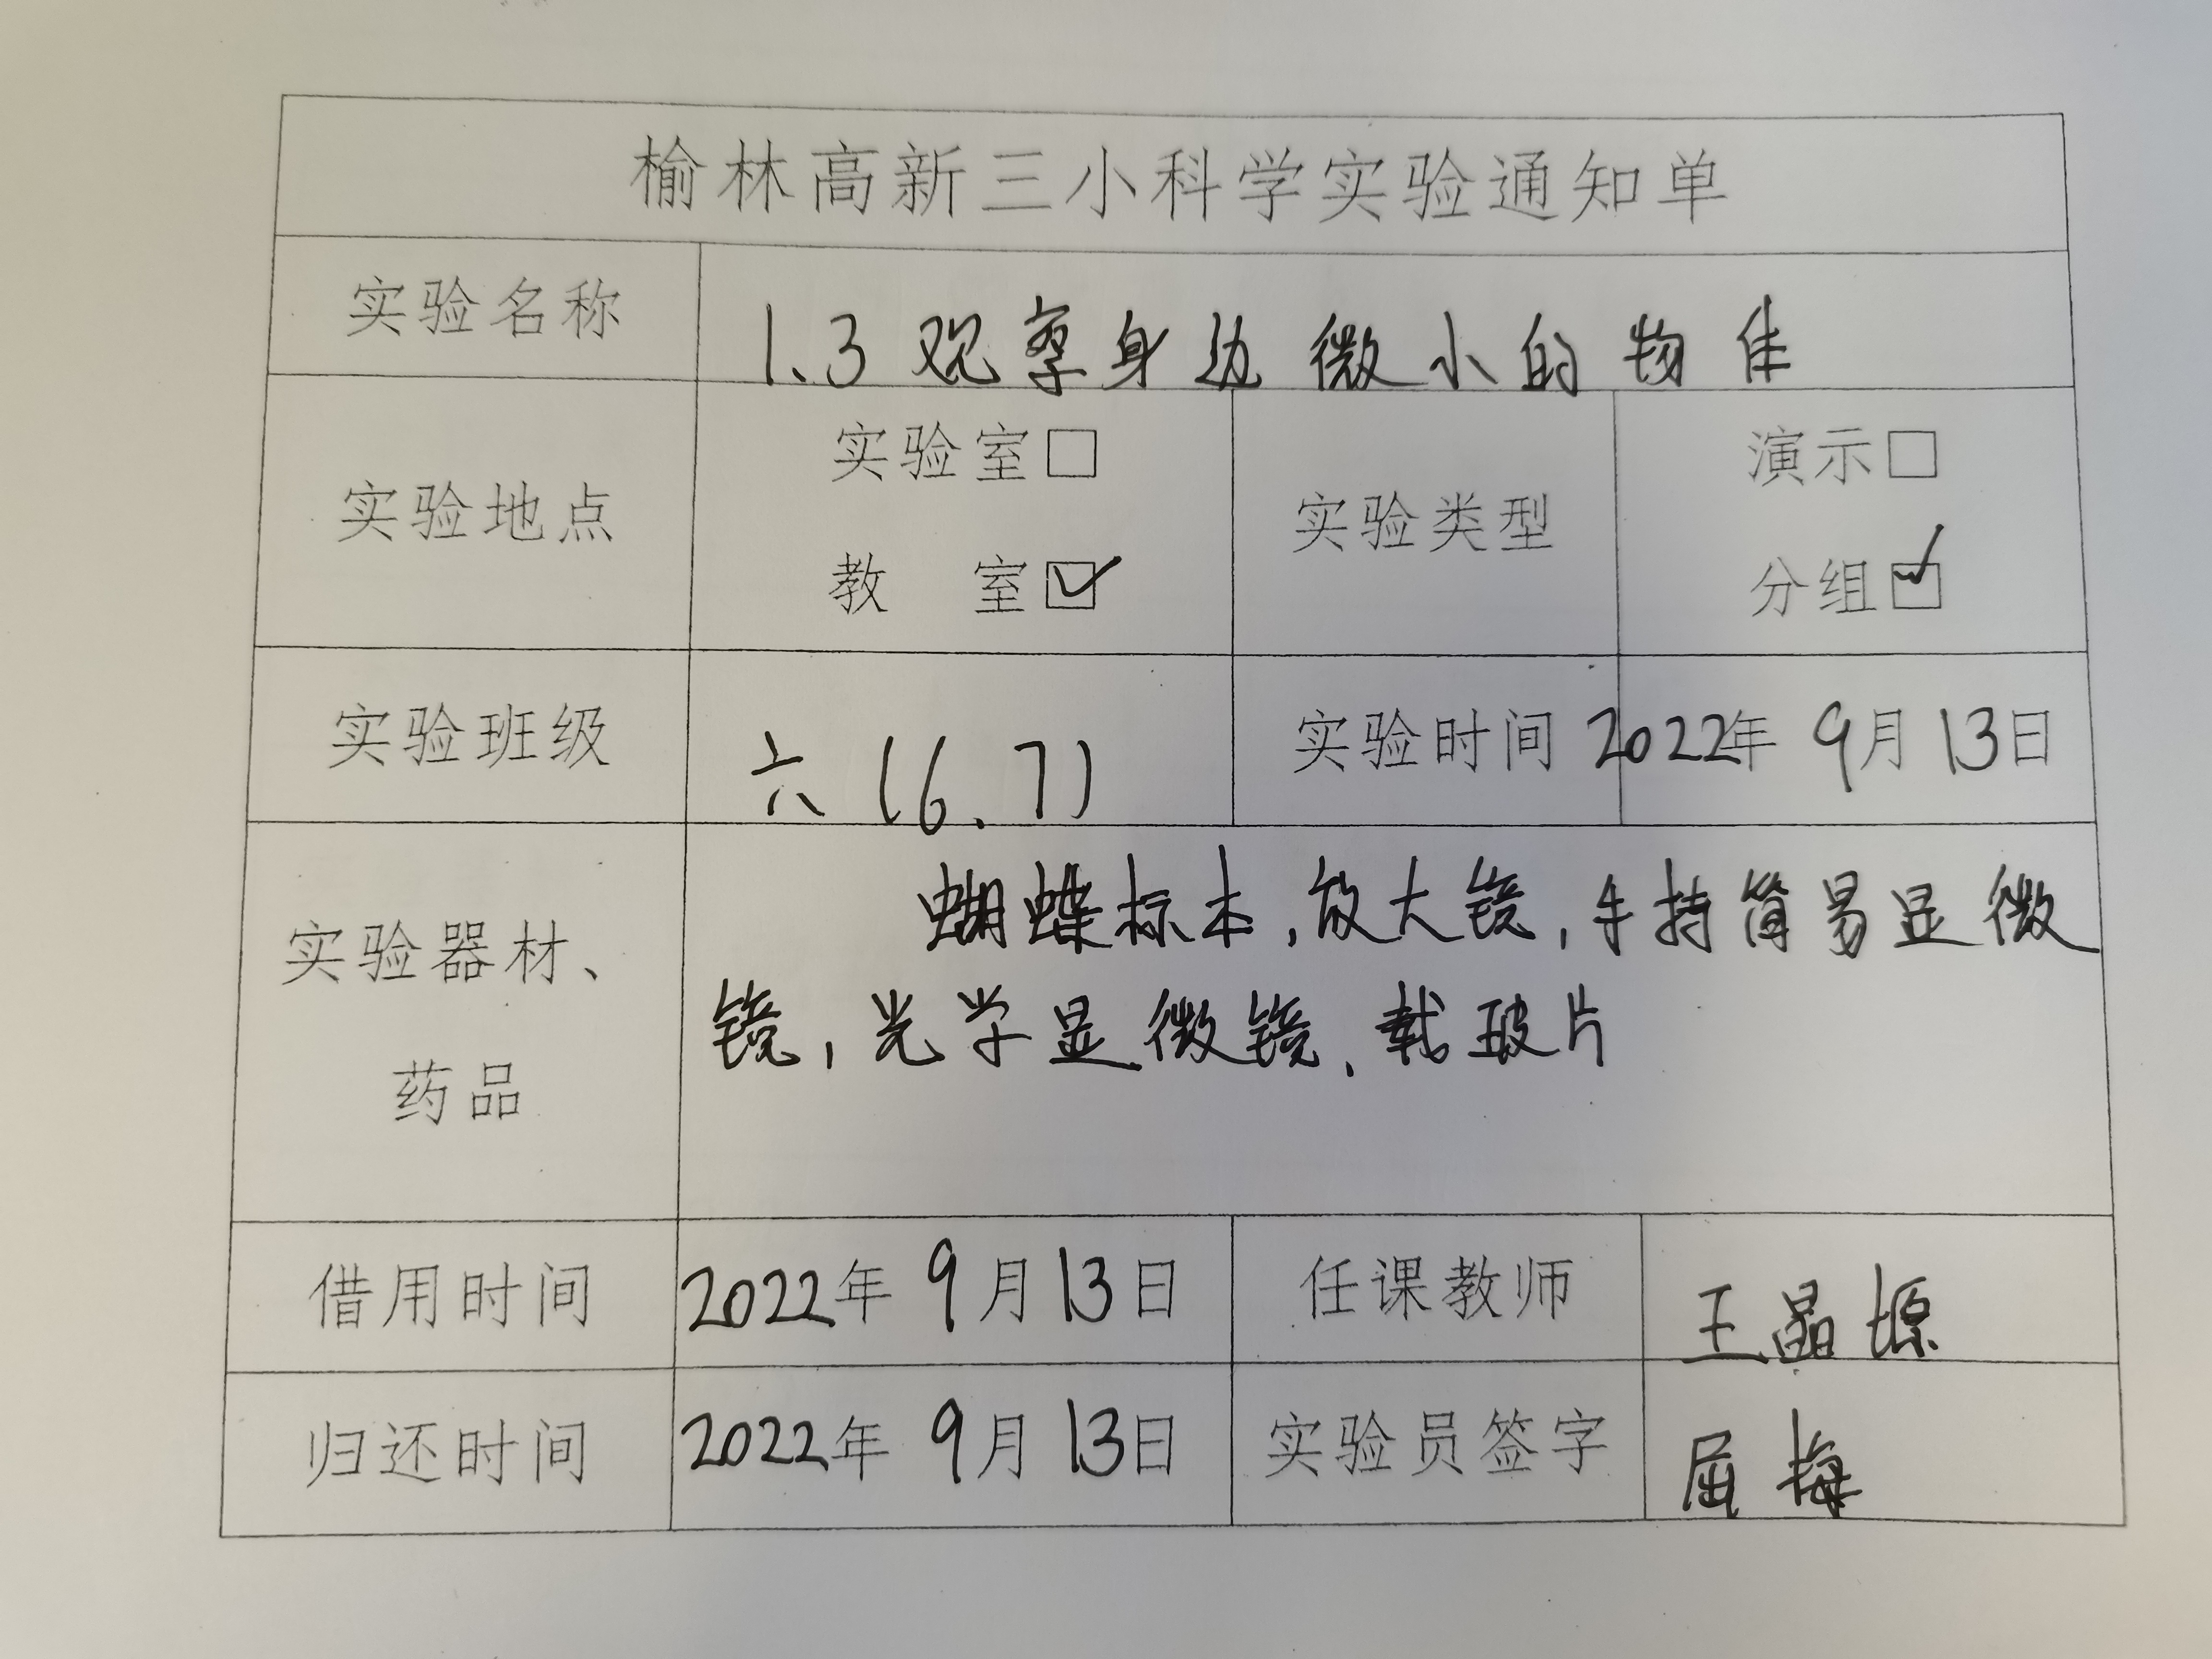 榆林高新三小科学实验通知单
实验名称 1.3 观察身边微小的物体
实验地点 实验室□ 教 室☑ 实验类型 演示□ 分组☑
实验班级 六(6.7) 实验时间 2022年 9月 13日
实验器材、药品
蝴蝶标本,放大镜,手持简易显微
镜,光学显微镜、载玻片
借用时间 2022年 9月 13日 任课教师 王晶塬
归还时间 2022年 9月 13日 实验员签字 屈梅